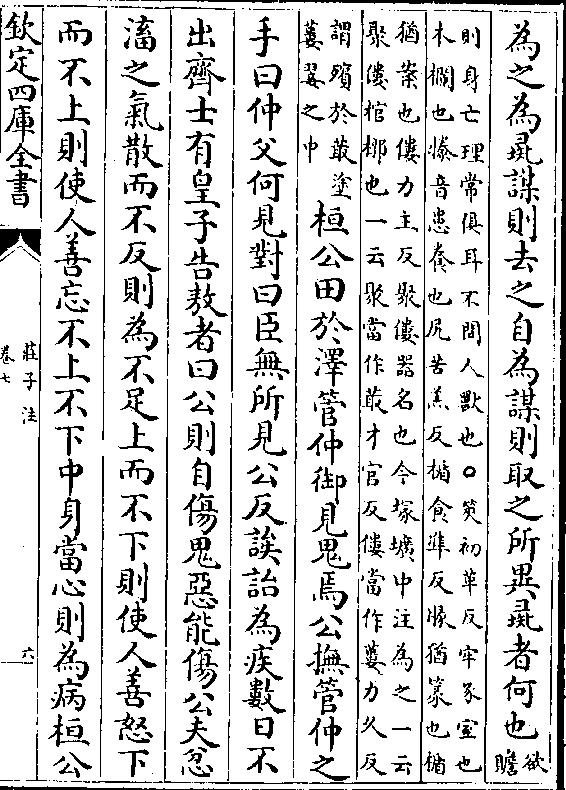 為之為彘謀則去之自為謀則取之所異彘者何也欲贍
則身亡理常俱耳不間人獸也○筴初革反牢豕室也
木欄也㹖音患養也尻苦羔反楯食準反腞猶篆也楯
猶案也僂力主反聚僂器名也今塚壙中注為之一云
聚僂棺槨也一云聚當作菆才官反僂當作蔞力久反
謂殯於菆塗
蔞翣之中
桓公田於澤管仲御見鬼焉公撫管仲之
手曰仲父何見對曰臣無所見公反誒詒為疾數日不
出齊士有皇子告敖者曰公則自傷鬼惡能傷公夫忿
滀之氣散而不反則為不足上而不下則使人善怒下
而不上則使人善忘不上不下中身當心則為病桓公
欽定四庫全書
莊子注
卷七
六